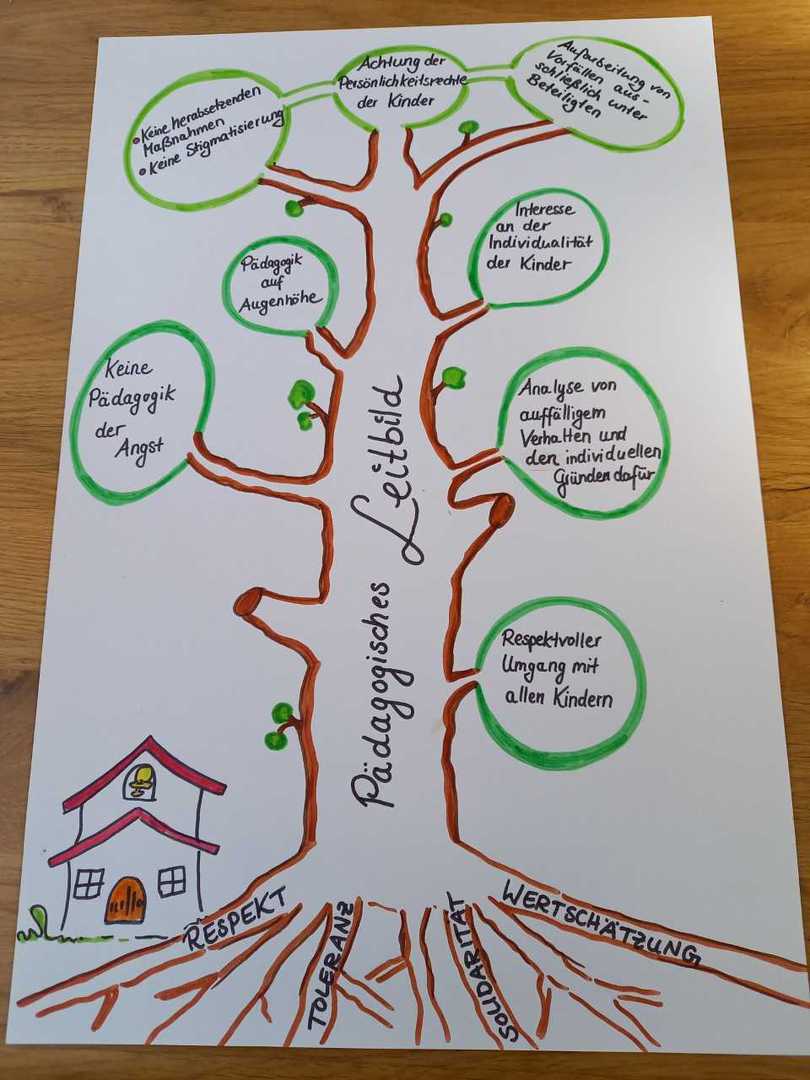 Achtung der
Persönlichkeitsrechte
der Kinder
Aufarbeitung von
Vorfällen aus-
schließlich unter
Beteiligten
• Keine herabsetzenden
Maßnahmen
• Keine Stigmatisierung
Interesse
an der
Individualität
der Kinder
Pädagogik
auf
Augenhöhe
Keine
Pädagogik
der
Angst
Analyse von
auffälligem
Verhalten und
den individuellen
Gründen dafür
Pädagogisches Leitbild
Respektvoller
Umgang mit
allen Kindern
RESPEKT
TOLERANZ
SOLIDARITÄT
WERTSCHÄTZUNG